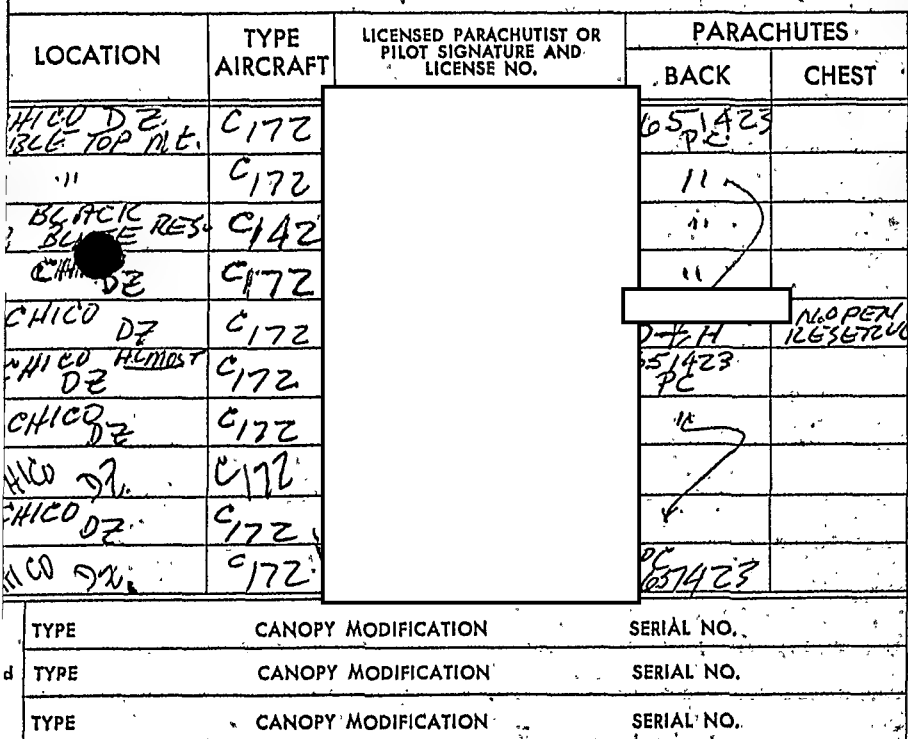 LOCATION
TYPE AIRCRAFT
LICENSED PARACHUTIST OR PILOT SIGNATURE AND LICENSE NO.
PARACHUTES
BACK
CHEST
HICO DZ.
BLE TOP Mt.
C172
651423
PC
"
C172
"
BLACK
RES.
C142
"
DZ
C172
"
CHICO DZ
C172
N.OPEN
CHICO ALMOST
DZ
C172
51423
PC
CHICO DZ
C172
"
HICO DZ.
C172
CHICO DZ
C172
HICO DZ.
C172
PC
651423
TYPE CANOPY MODIFICATION SERIAL NO.
d TYPE CANOPY MODIFICATION SERIAL NO.
TYPE CANOPY MODIFICATION SERIAL NO.